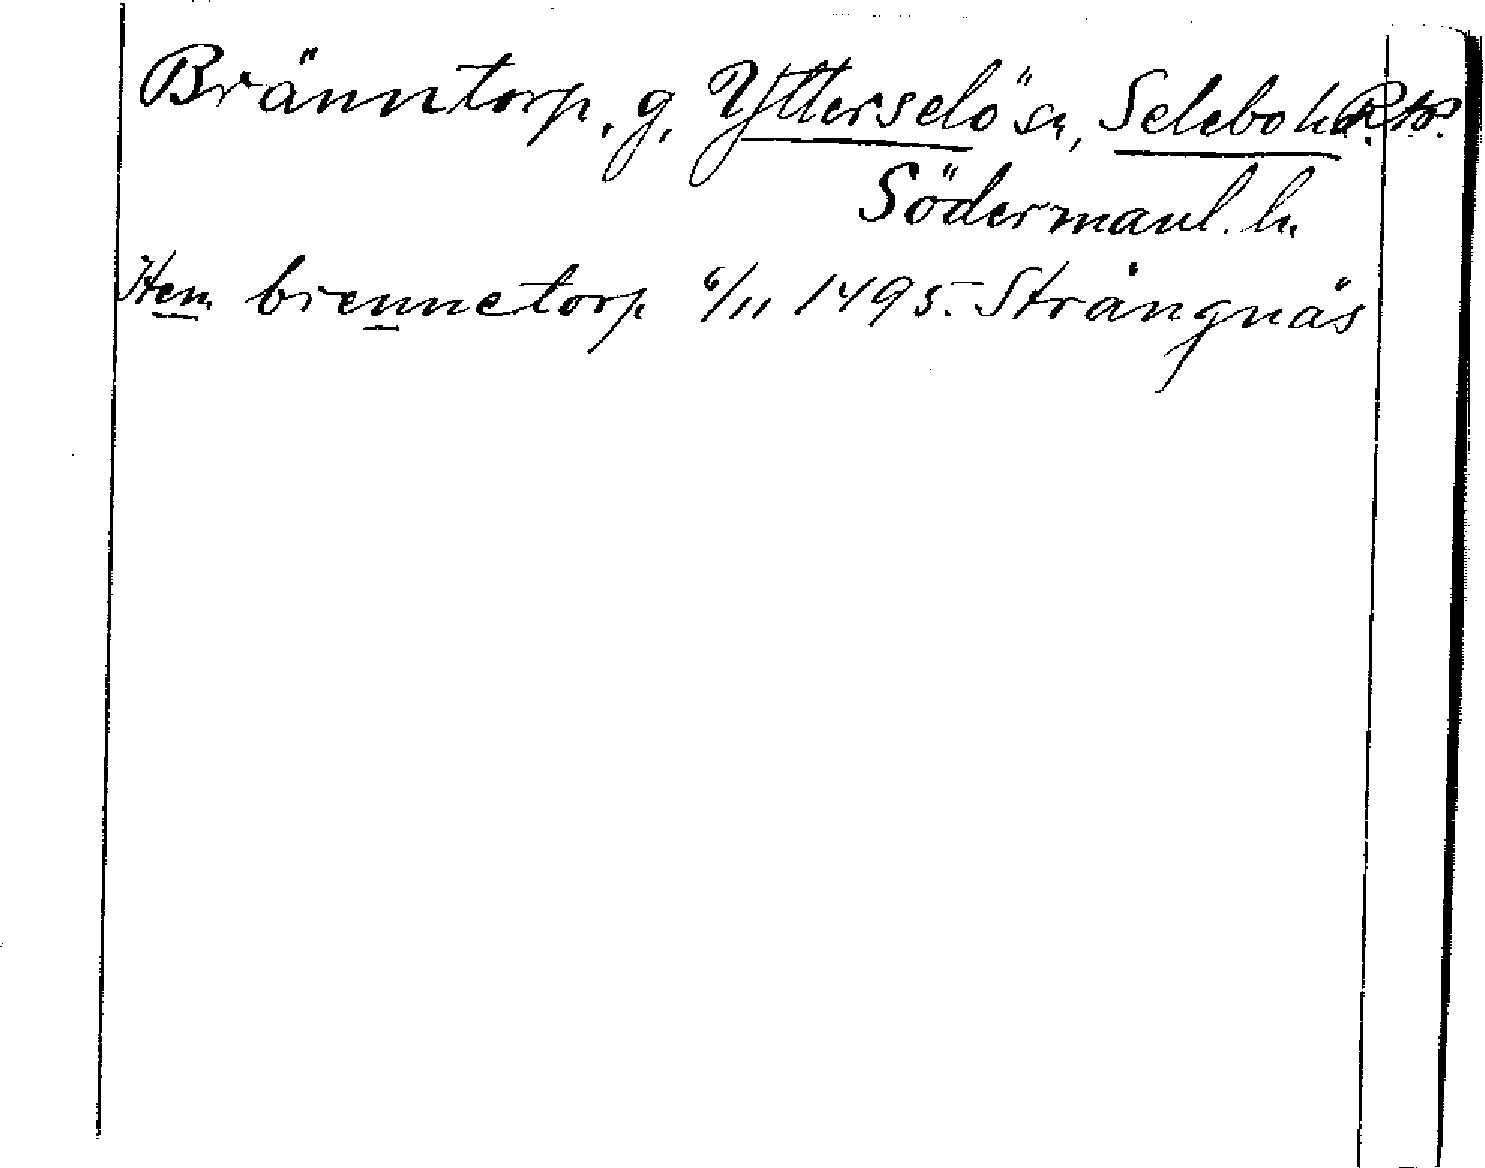 Bränntorp, g, Ytterselö sn, Selebo hd
Södermanl. l.
Item brennetorp 6/11 1495. Strängnäs